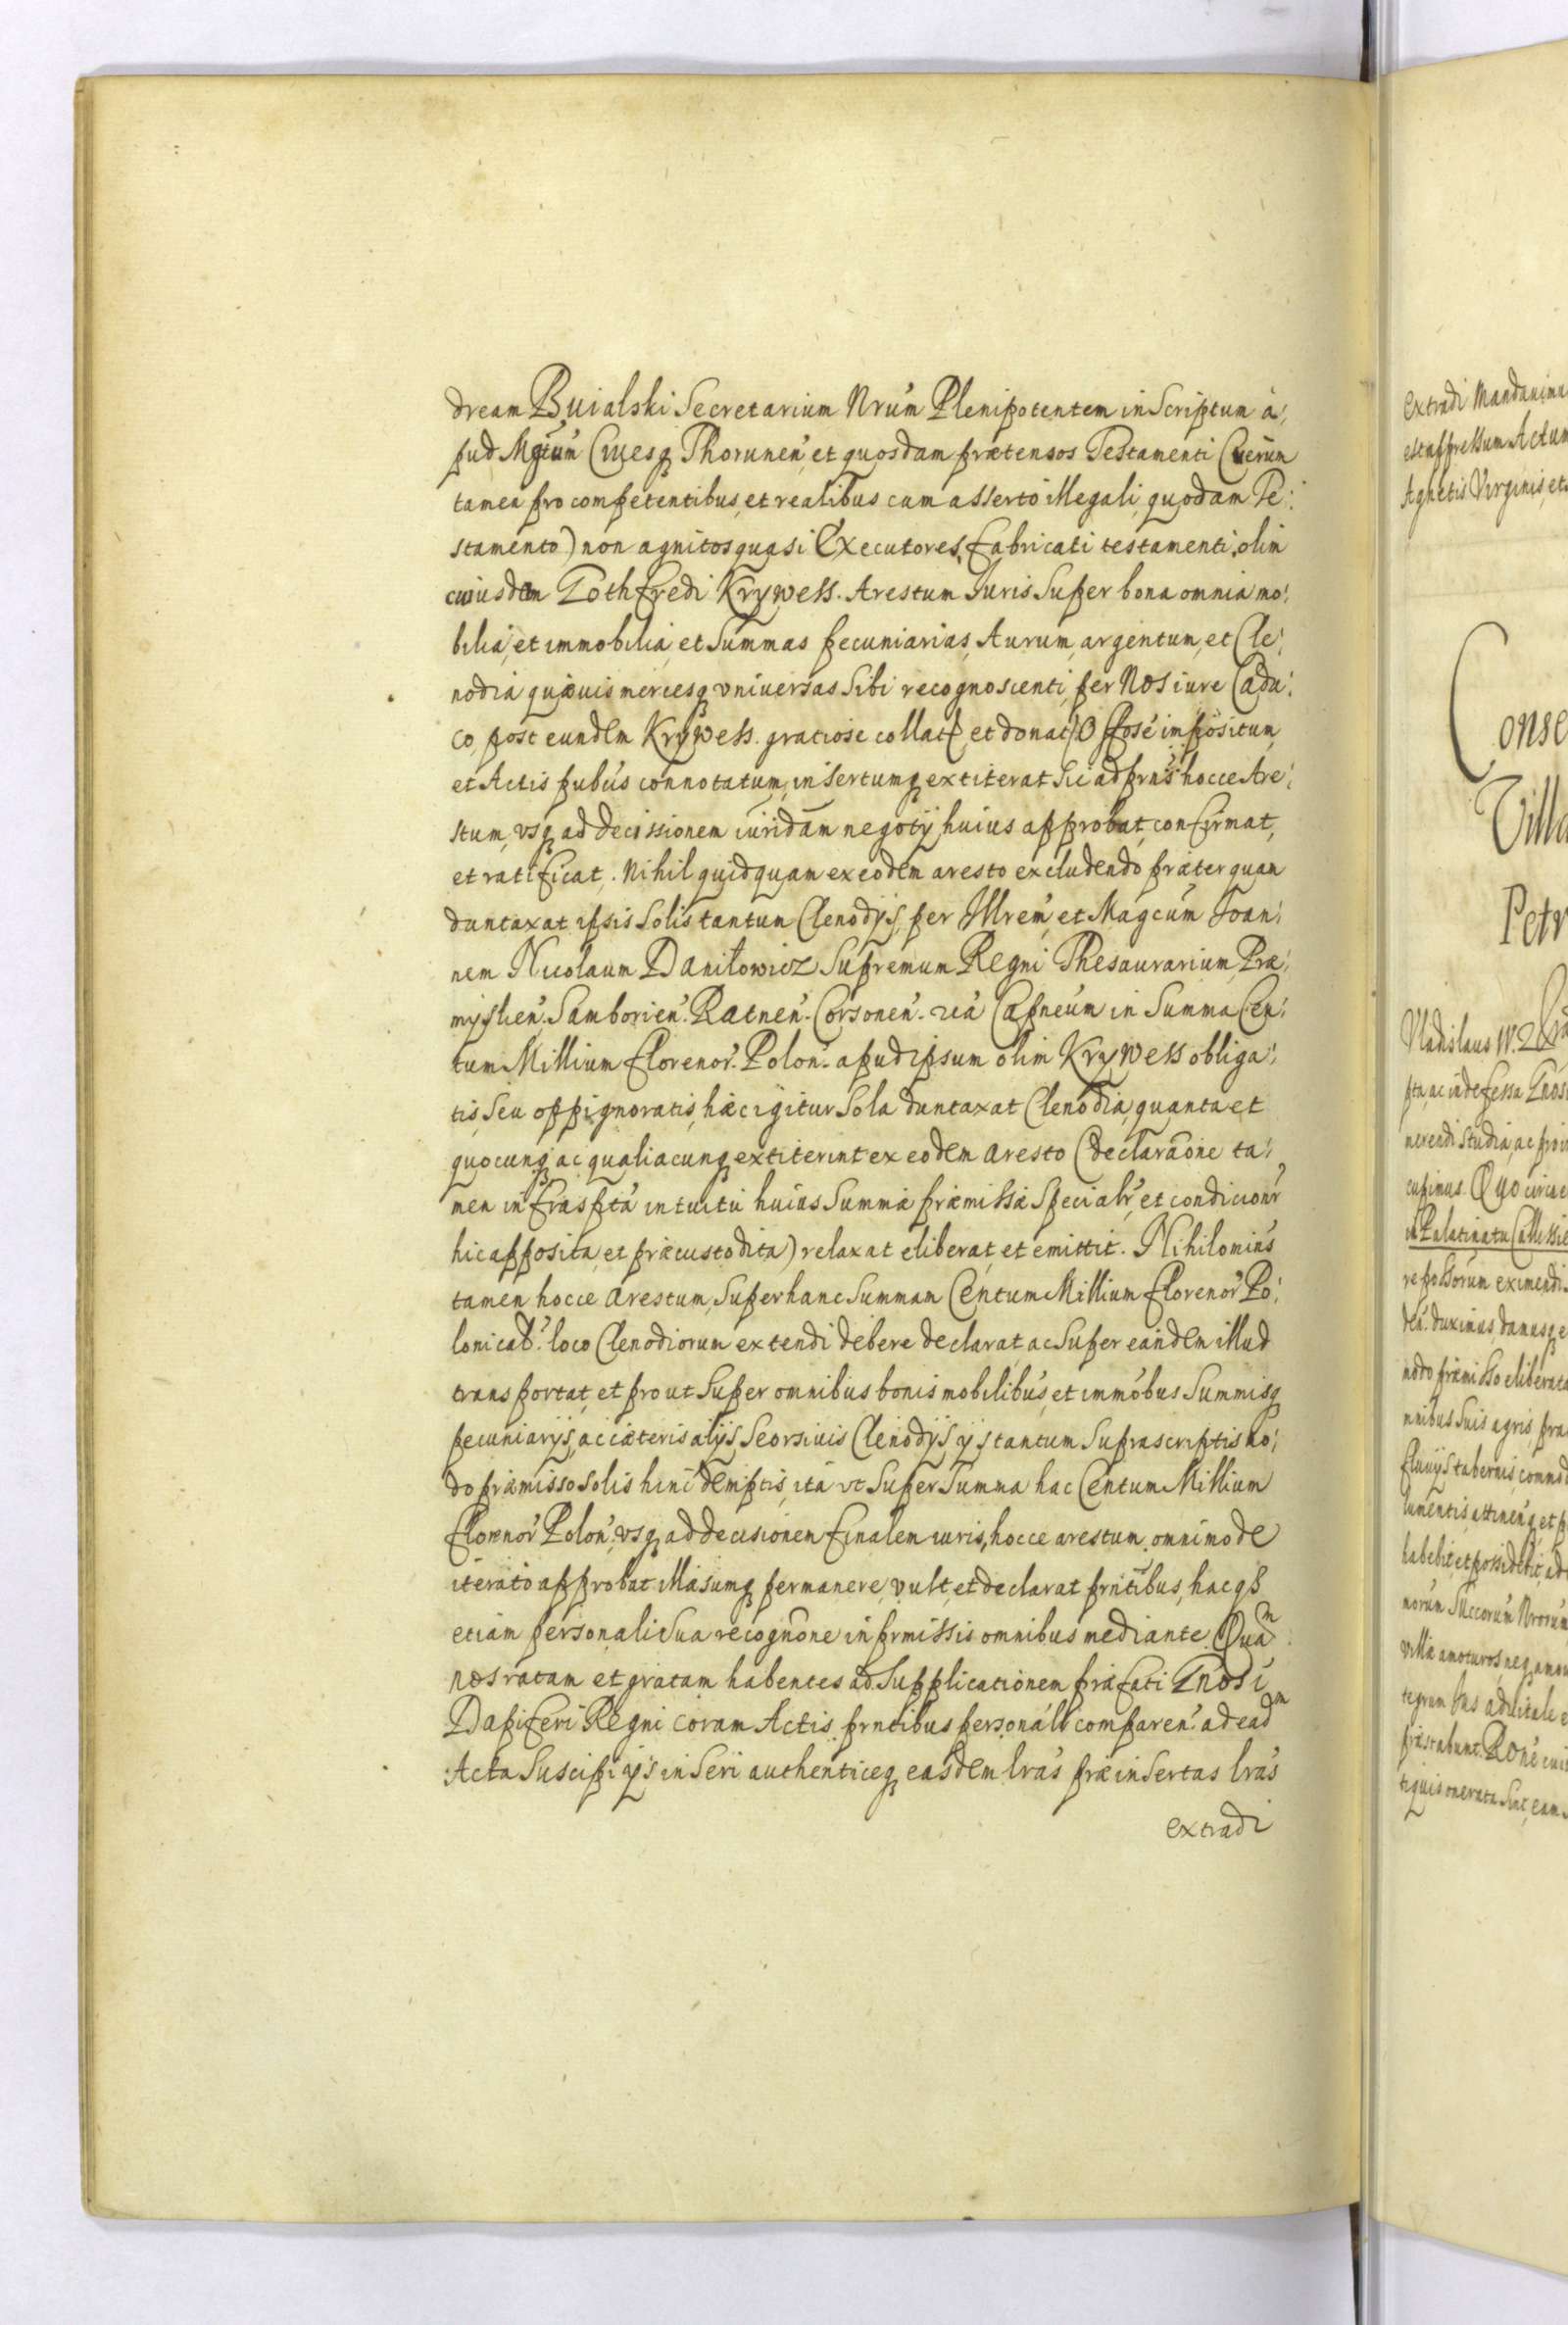 dream Buialski Secretarium Nrum Plenipotentem inScriptum a,
pud Mgtum Ciuesq Thorunen, et quosdam prætensos Testamenti (uerum
tamen pro competentibus, et realibus cum asserto illegali quodam Te:
stamento) non agnitos quasi Executores, fabricati testamenti, olim
cuiusdem Gothfredi Krywess. Arestum Juris Super bona omnia mo,
bilia, et immobilia, et Summas pecuniarias, Aurum, argentum, et Cle,
nodia quæuis mercesq vniuersas Sibi recognoscenti, per Nos iure Cadu,
co, post eundem Krywess gratiose collat, et donat, Offose impositum,
et Actis pubus connotatum, insertumq extiterat Sic ad prns hocce Are,
stum, vsq ad decissionem iuridam negoty huius approbat, confirmat,
et ratificat. Nihil quidquam ex eodem aresto excludendo præterquam
duntaxat ipsis Solis tantum Clenodys, per Illrem, et Magcum Joan,
nem Nicolaum Daniłowicz Supremum Regni Thesaurarium, Præ,
myslien. Samborien. Ratnen. Corsonen. Capneum in Summa Cen,
tum Millium florenor. Polon. apud ipsum olim Krywess obliga,
tis, Seu oppignoratis, hæc igitur Sola duntaxat Clenodia, quanta et
quocunq ac qualiacunq extiterint ex eodem aresto (declaraone ta,
men infraspta intuitu huius Summæ præmissæ Specialr, et condicionr
hic apposita, et præcustodita) relaxat eliberat, et emittit. Nihilomins
tamen hocce arestum, Super hanc Summam Centum Millium florenor Po,
lonical. loco Clenodiorum extendi debere declarat, ac Super eandem illud
transportat, et prout Super omnibus bonis mobilibus, et immobus Summisq
pecuniarys, ac cæteris alys, Seorsiuis Clenodys, ys tantum Suprascriptis mo,
do præmisso Solis hinc demptis, ita vt Super Summa hac Centum Millium
florenor Polon. vsq ad decisionem finalem iuris, hocce arestum omnimode
iterato approbat illæsumq permanere, vult, et declarat prntibus, hac qs
etiam personali Sua recognone in prmissis omnibus mediante. Quam
nos ratam et gratam habentes ad Supplicationem præfati Gnosi
Dapiferi Regni coram Actis prntibus personalr comparen. ad eadm
Acta Suscipi ijs inSeri authenticeq easdem lras præinSertas lras
extradi
extradi Mandauimu
est appressum Actum
Agnetis Virginis, et
Conse
Villa
Petr
Vladislaus IV.
nerendi Studia, ac
cupimus. Quo circa
in Palatinatu Calissie
repossorum eximendi
duximus damusq e
modo præmisso eliberata
mnibus Suis agris, pra
fluuys tabernis, commod
lumentis, attinenq et
habebit, et possidebit, ad
norum Succorum Nrorum
Villa amoturos neq amou
tegrum Jus aduitale
præstabunt. Rone
onerata Sint, eam